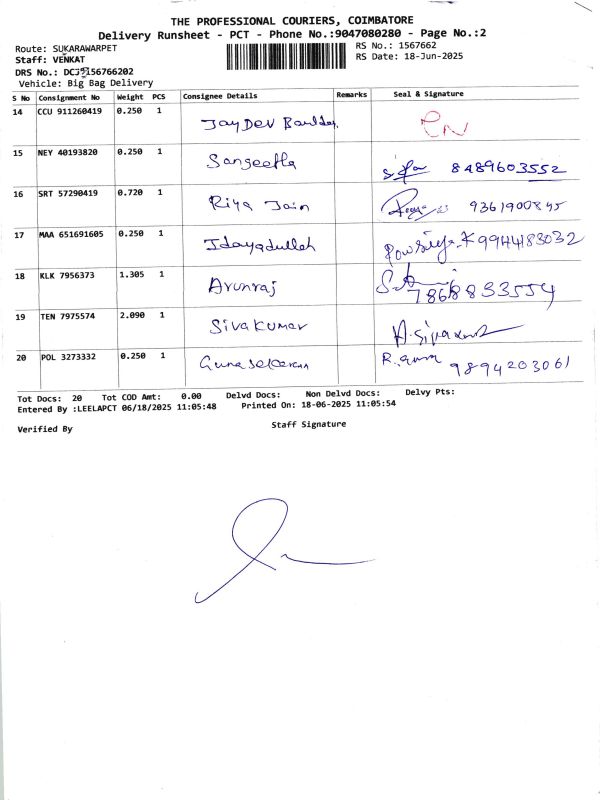 THE PROFESSIONAL COURIERS, COIMBATORE
Delivery Runsheet - PCT - Phone No.:9047080280 - Page No.:2
Route: SUKARAWARPET
RS No.: 1567662
Staff: VENKAT
RS Date: 18-Jun-2025
DRS No.: DCJ9156766202
Vehicle: Big Bag Delivery
S No Consignment No Weight PCS Consignee Details Remarks Seal & Signature
14 CCU 911260419 0.250 1 JayDev
15 NEY 40193820 0.250 1 Sangeetha 8489603552
16 SRT 57290419 0.720 1 Riya Jain 9361900845
17 MAA 651691605 0.250 1 Idayadulleh 9944183032
18 KLK 7956373 1.305 1 Arunraj 7868833554
19 TEN 7975574 2.090 1 SivaKumar
20 POL 3273332 0.250 1 Gunasekaran R.guna 9894203061
Tot Docs: 20 Tot COD Amt: 0.00 Delvd Docs: Non Delvd Docs: Delvy Pts:
Entered By :LEELAPCT 06/18/2025 11:05:48 Printed On: 18-06-2025 11:05:54
Verified By Staff Signature